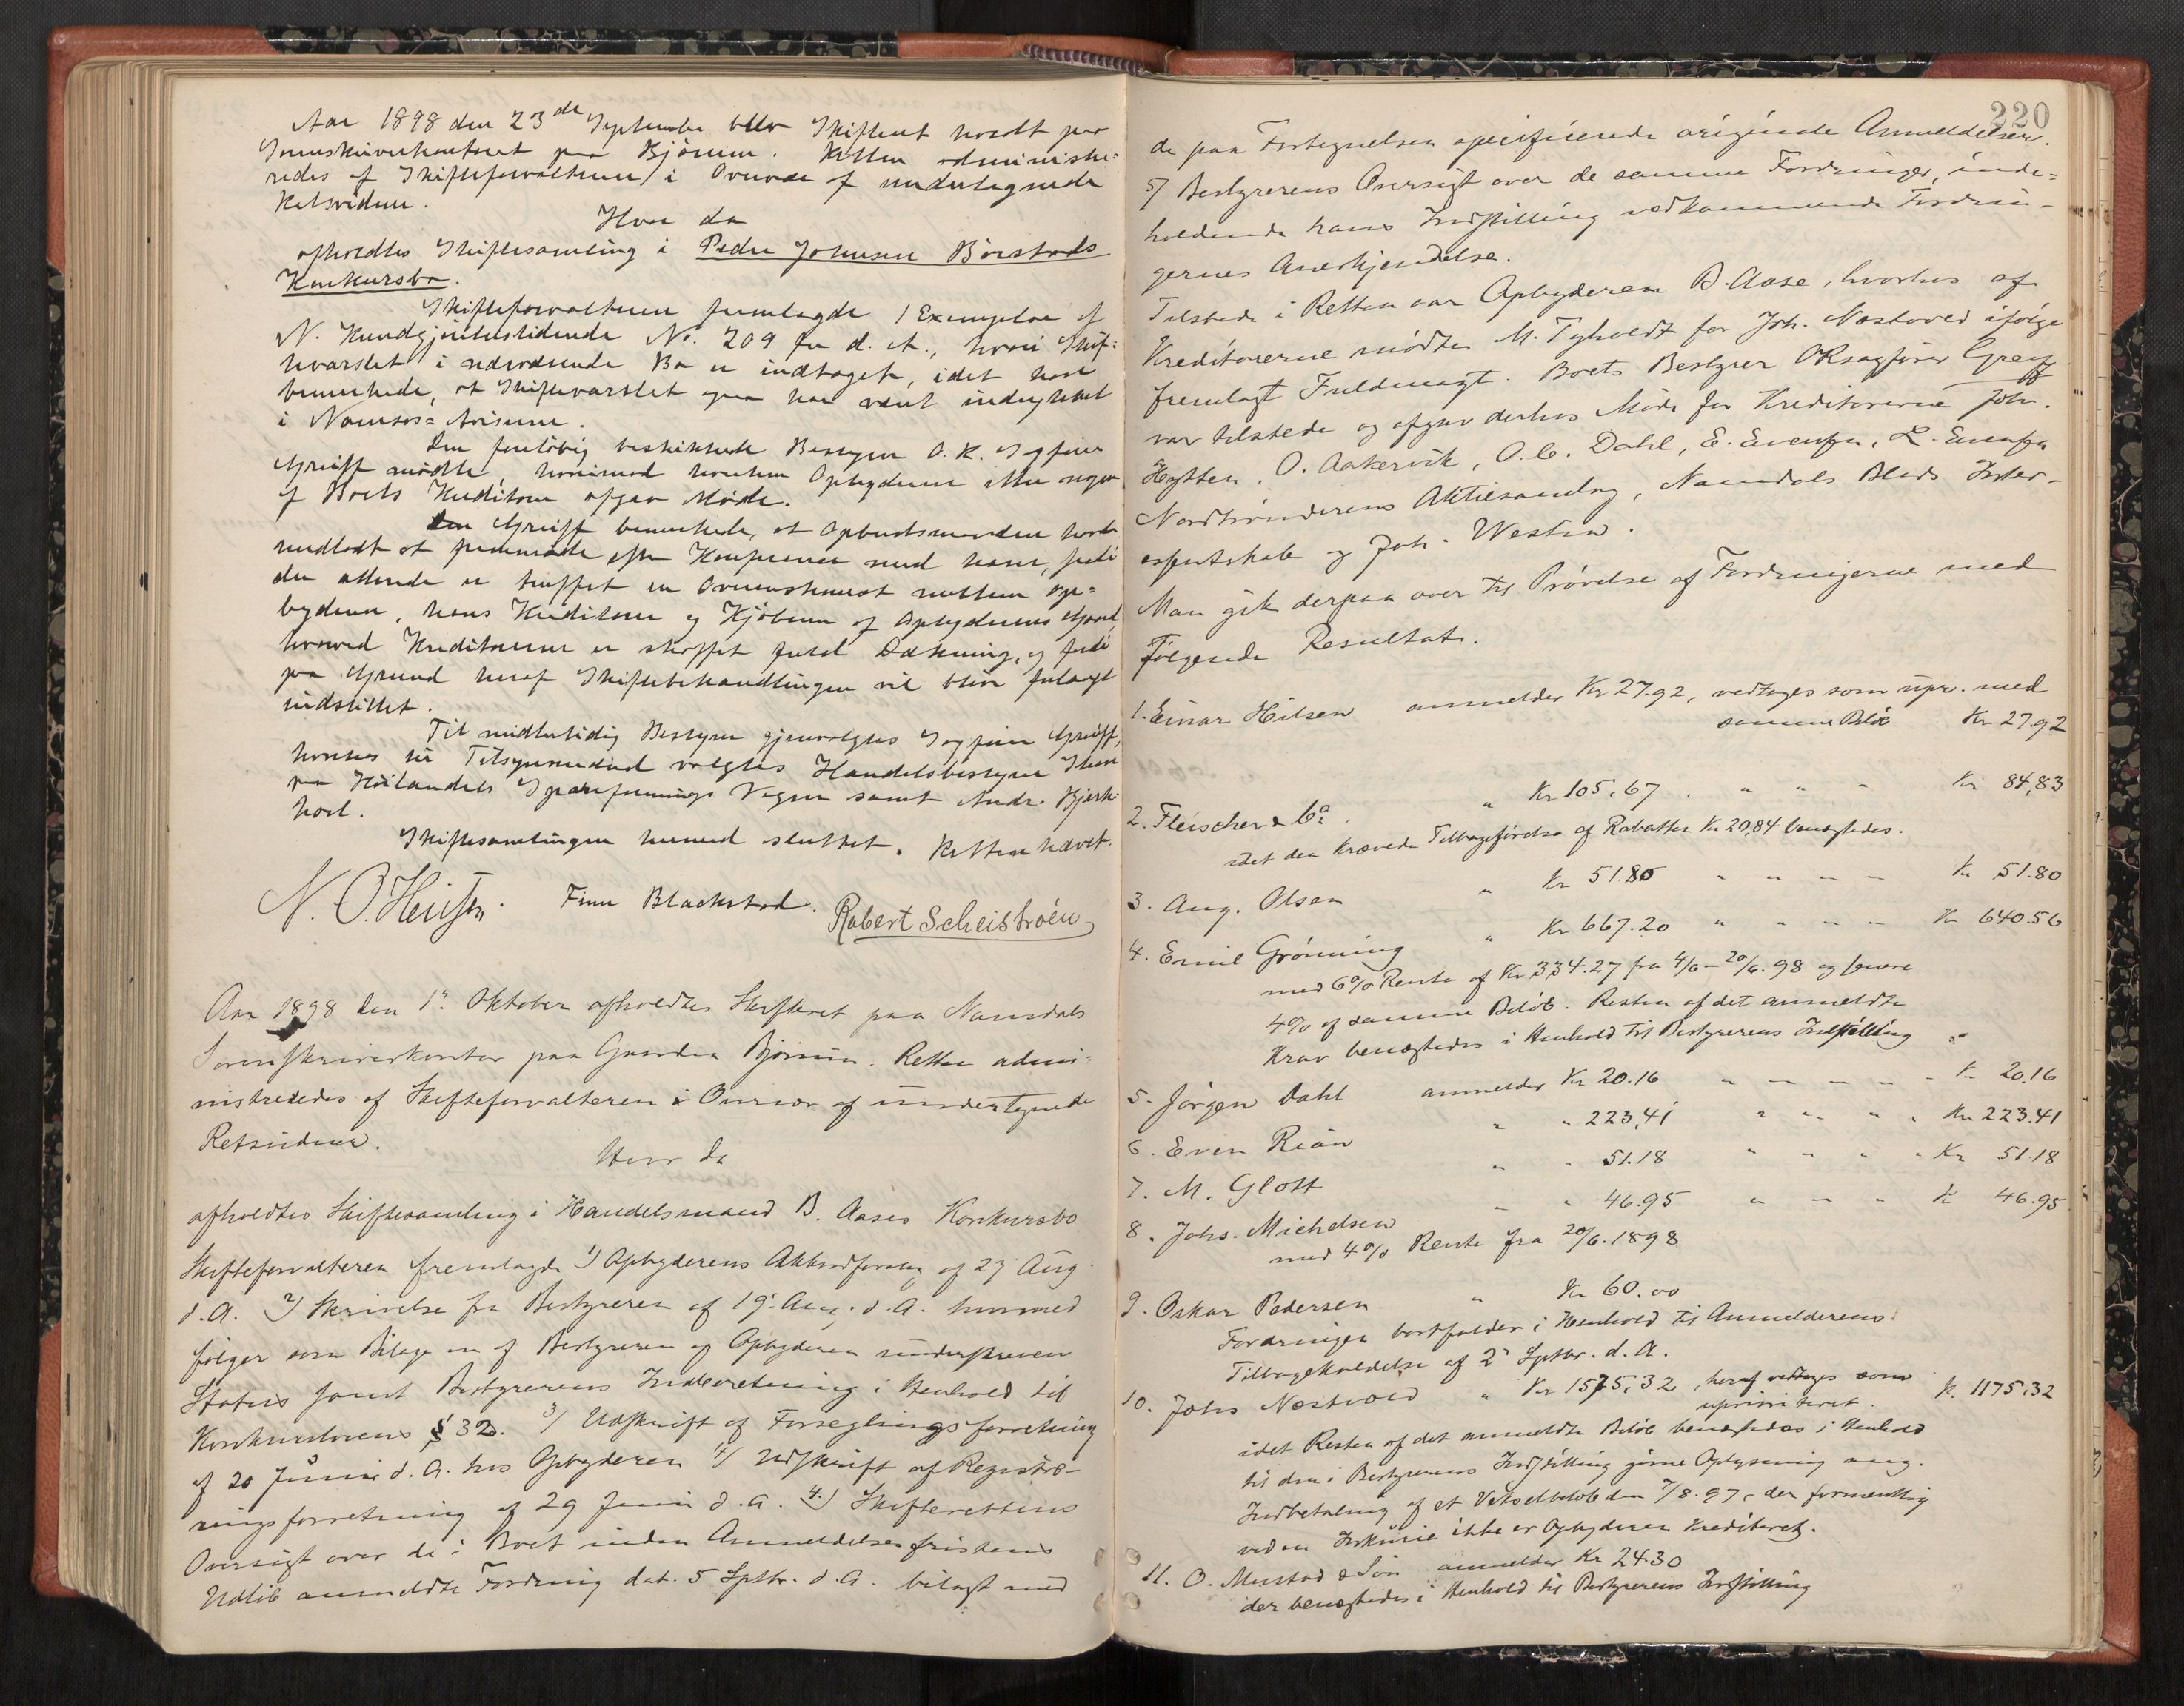 Aar 1898 den 23de September blev Skifteret holdt paa
Sorenskriverkontoret paa Björum. Retten administre=
redes af Skifteforvalteren i Overvær af undertegnede
Retsvidner.
Hvor da
afholdtes Skiftesamling i Peder Johnsen Börstads
Konkursbo.
Skifteforvalteren fremlagde 1 Exemplar af
N. Kundgjörelsestidende No. 209 for d. A., hvori Skif=
tevarslet i nærværende Bo er indtaget, idet han
bemærkede, at Skiftevarslet ogsaa har været indrykket
i Namsos= Avisen.
Den foreløbig beskikkede Bestyrer O.R. Sagfører
Greiff mødte hvorimod hverken Opbyderen eller nogen
af Boets Kreditorer afgav Møde.
Greiff bemærkede, at Opbudsmanden havde
undladt at fremmøde efter Konference med ham, fordi
der allerede er truffet en Overenskomst mellem Op=
byderen, hans Kreditorer og Kjøberen af Opbyderens Gaard,
hvorved Kreditorerne er skaffet fuld Dækning, og fordi
paa Grund heraf Skiftebehandlingen vil blive forlangt
indstillet.
Til midlertidig Bestyrer gjenvalgtes Sagfører Greiff,
hvorhos til Tilsynsmænd valgtes Handelsbestyrer
paa Høilandets Spareforenings Vegne samt Andr. Bjerk=
hoel.
Skiftesamlingen hermed sluttet. Retten hævet.
Finn Blackstad. Robert Scheiströen
Aar 1898 den 1. Oktober afholdtes Skifteret paa Namdals
Sorenskriverkontor paa Gaarden Björum. Retten admi=
nistreredes af Skifteforvalteren i Overvær af undertegnede
Retsvidner.
Hvor da
afholdtes Skiftesamling i Handelsmand B. Aases Konkursbo
Skifteforvalteren fremlagde 1) Opbyderens Akkordforslag af 27 Aug.
d.A. 2) Skrivelse fra Bestyreren af 19. Aug. d.A. hvormed
følger som Bilage en af Bestyreren og Opbyderen underskreven
Status samt Bestyrerens Indberetning i Henhold til
Konkurslovens § 32. 3) Udskrift af Forseglingsforretning
af 20 Juni d.A. hos Opbyderen 4) Udskrift af Registre-
ringsforretning af 29 Juni d.A. 4) Skifterettens
Oversigt over de i Boet inden Anmeldelsesfristens
Udløb anmeldte Fordring dat. 5 Septbr. d.A. bilagt med
220
de paa Fortegnelsen specificerede originale Anmeldelser.
5) Bestyrerens Oversigt over de samme Fordringer, inde=
holdende hans Indstilling vedkommende Fordrin-
gernes Anerkjendelse.
Tilstede i Retten var Opbyderen B. Aase, hvorhos af
Kreditorerne mødte M. Tyholdt for Joh. Næstvold ifølge
fremlagt Fuldmagt. Boets Bestyrer ORsagfører Greiff
var tilstede og afgav derhos Møde for Kreditorerne Joh.
Hytten, O. Aakervik, O.C. Dahl, E. Svensen, L. Svensen
Nordtrønderens Aktiesamlag, Namdals Blads Inter-
essentskab og Joh. Westen.
Man gik derpaa over til Prøvelse af Fordringerne med
Følgende Resultat.
1. Einar Hilsen anmelder Kr 27.92, vedtages som upr. med
samme Beløb Kr 27.92
2. Fleischer & Co. " Kr 105,67 . " " " Kr 84,83
idet den krævede Tilbageførelse af Rabatten Kr 20,84 benægtedes.
3. Aug. Olsen " Kr 51.80 " " " " Kr 51.80
4. Emil Grønning " Kr 667.20 " " " " Kr 640.56
med 6% Rente af Kr 334.27 fra 4/6 – 20/6. 98 og senere
4% af samme Beløb. Resten af det anmeldte
Krav benægtedes i Henhold til Bestyrerens Indstilling
5. Jörgen Dahl anmelder Kr 20.16 " " " " " Kr 20,16
6. Even Rian " " 223,41 " " " " Kr 223.41
7. M. Glott " " 51.18 " " " " Kr 51.18
8. Johs. Michelsen " " 46.95 " " " Kr 46.95
med 4% Rente fra 20/6. 1898
9. Oskar Pedersen " Kr 60.00
Fordringen bortfalder i Henhold til Anmelderens
Tilbagekaldelse af 2' Septbr. d.A.
10. Johs Næstvold " Kr 1575,32, heraf vedtages som
uprioriteret. Kr. 1175,32
idet Resten af det anmeldte Beløb benægtedes i Henhold
til den i Bestyrerens Indstilling givne Oplysning ang.
Indbetaling af et Vekselbeløb den 7/8. 97, der formentlig
ved en Inkurie ikke er Opbyderen krediteret.
11. O. Mustad & Søn anmelder Kr 24.30
der benægtedes i Henhold til Bestyrerens Indstilling